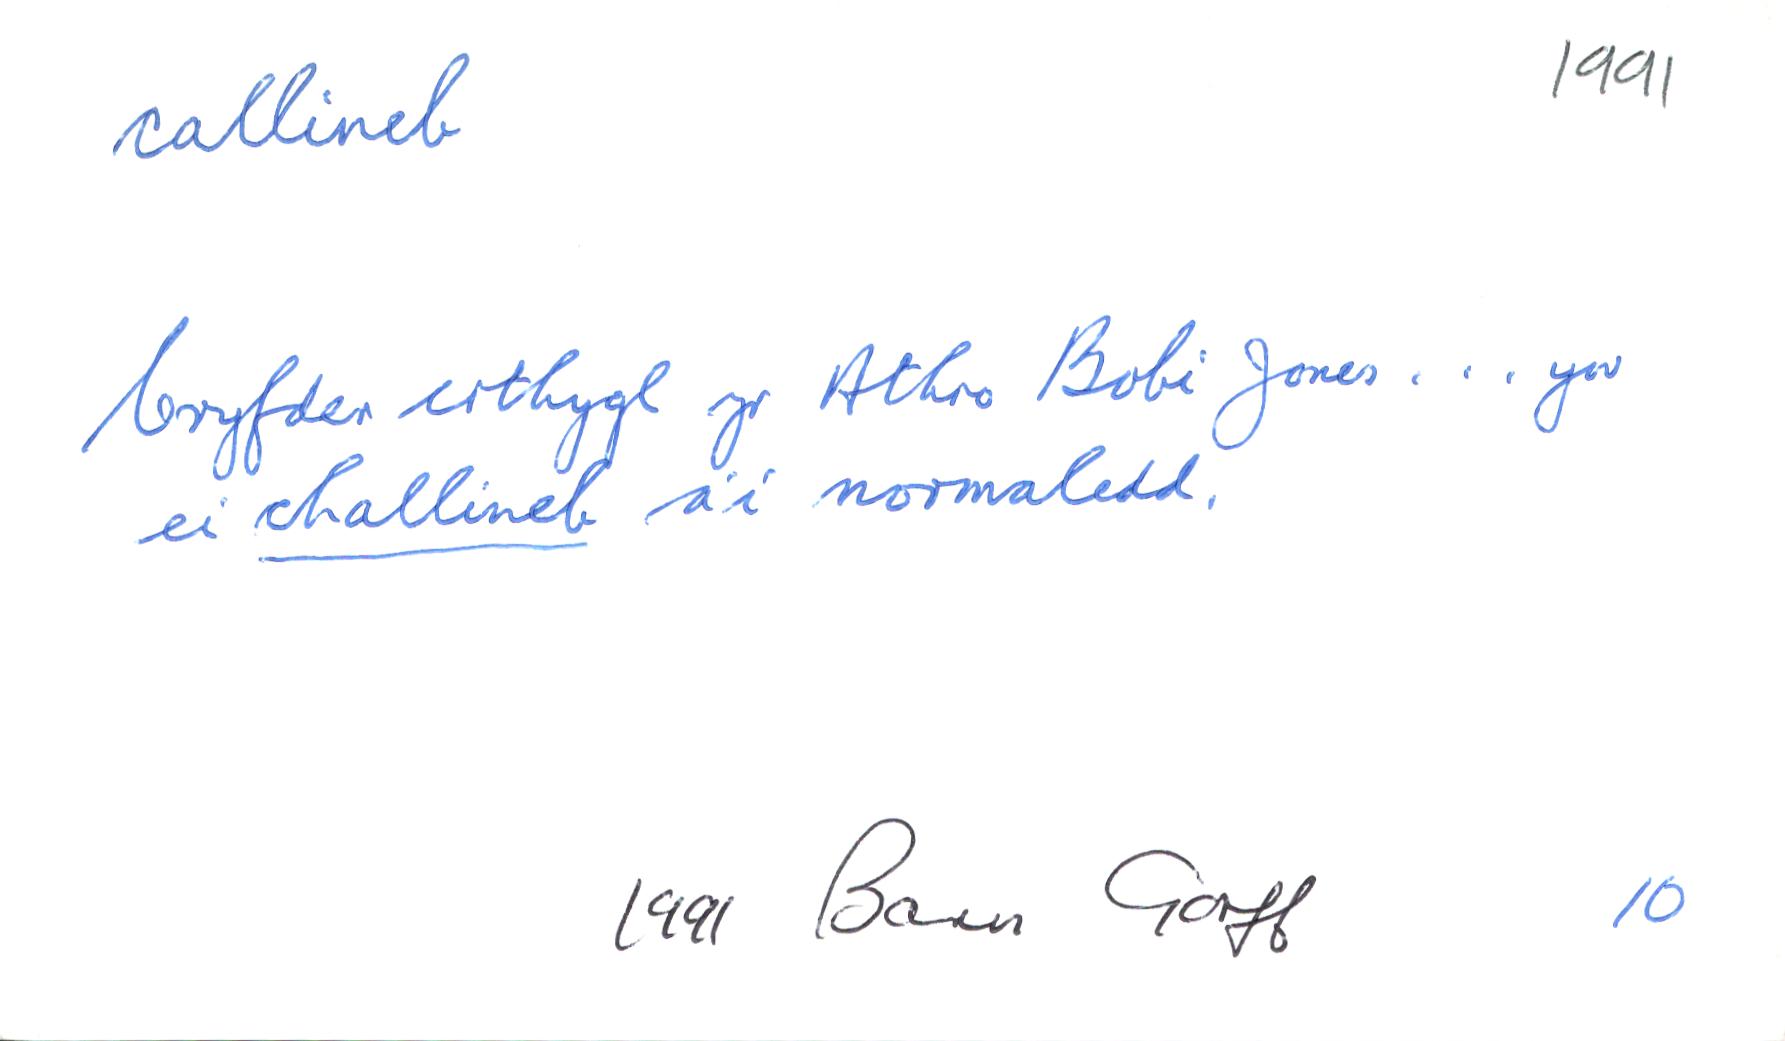 callineb 1991
Cryfder erthygl yr Athro Bobi Jones . . . yw
ei challineb a'i normaledd.
1991 Barn Gorff 10